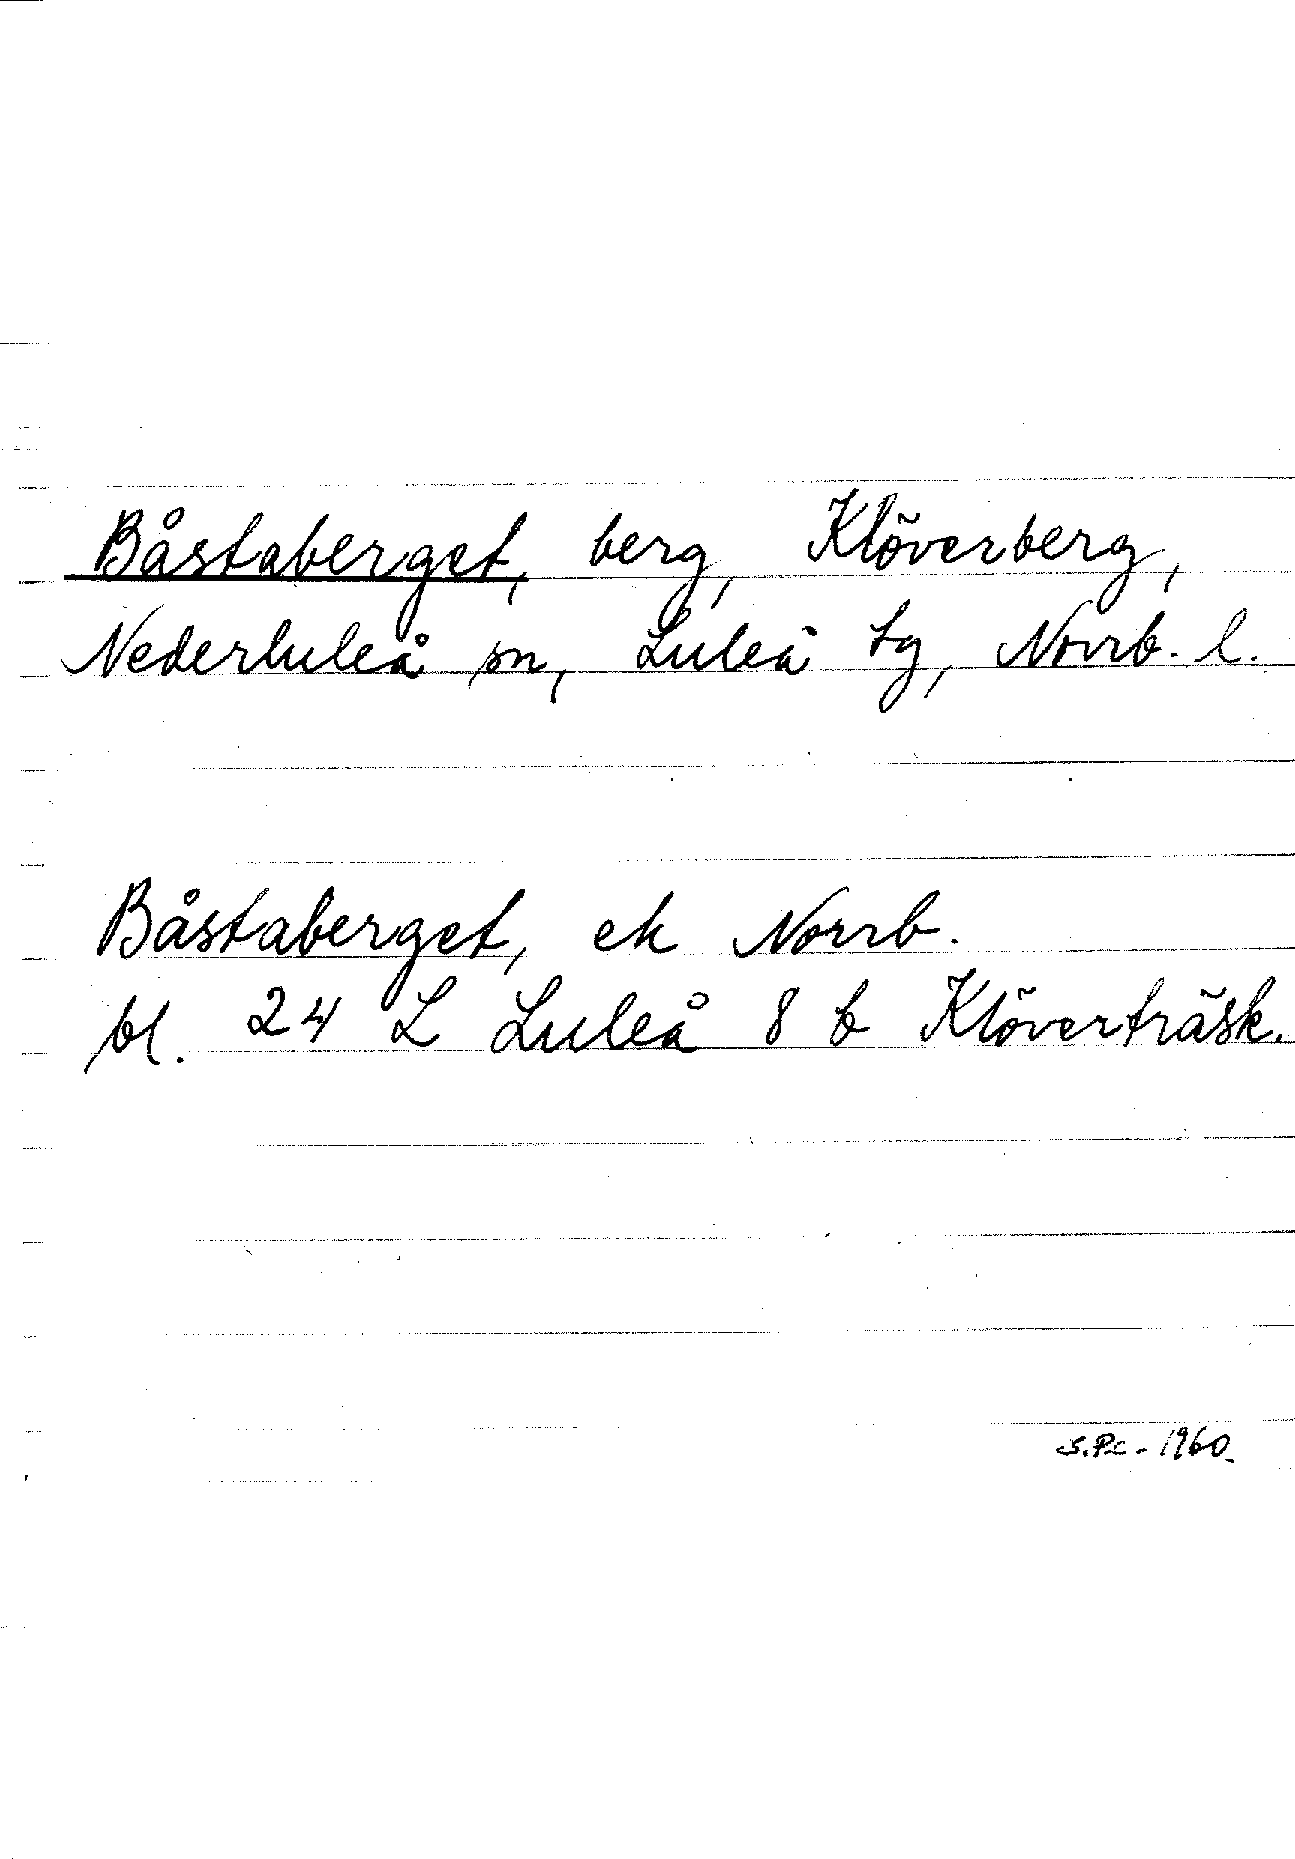 Båstaberget, berg, Klöverberg,
Nederluleå sn, Luleå tg, Norrb. l.
Båstaberget, ek Norrb.
bl. 24 L Luleå 8 b Klöverträsk.
S.Pc - 1960